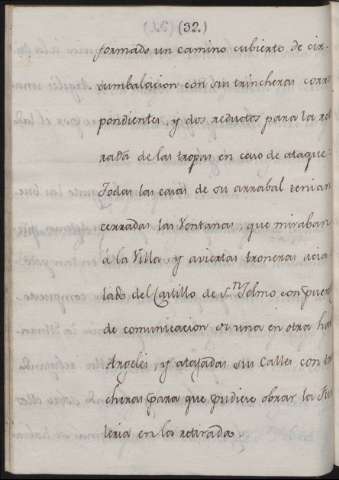 (32.)
formado un camino cubierto de cir-
cumbalacion con sus trincheras corrs
pondientes, y dos reductos para la ret
rada de las tropas en caso de ataque.
Todas las casas de su arrabal tenian
cerradas las Ventanas, que miraban
á la Villa, y aviertas troneras acia
lado del Castillo de Sn. Telmo con puer
de comunicacion de una en otra ha
Argeles, y atajadas sus Calles con t
cheras para que pudiese obrar la
leria en la retirada.